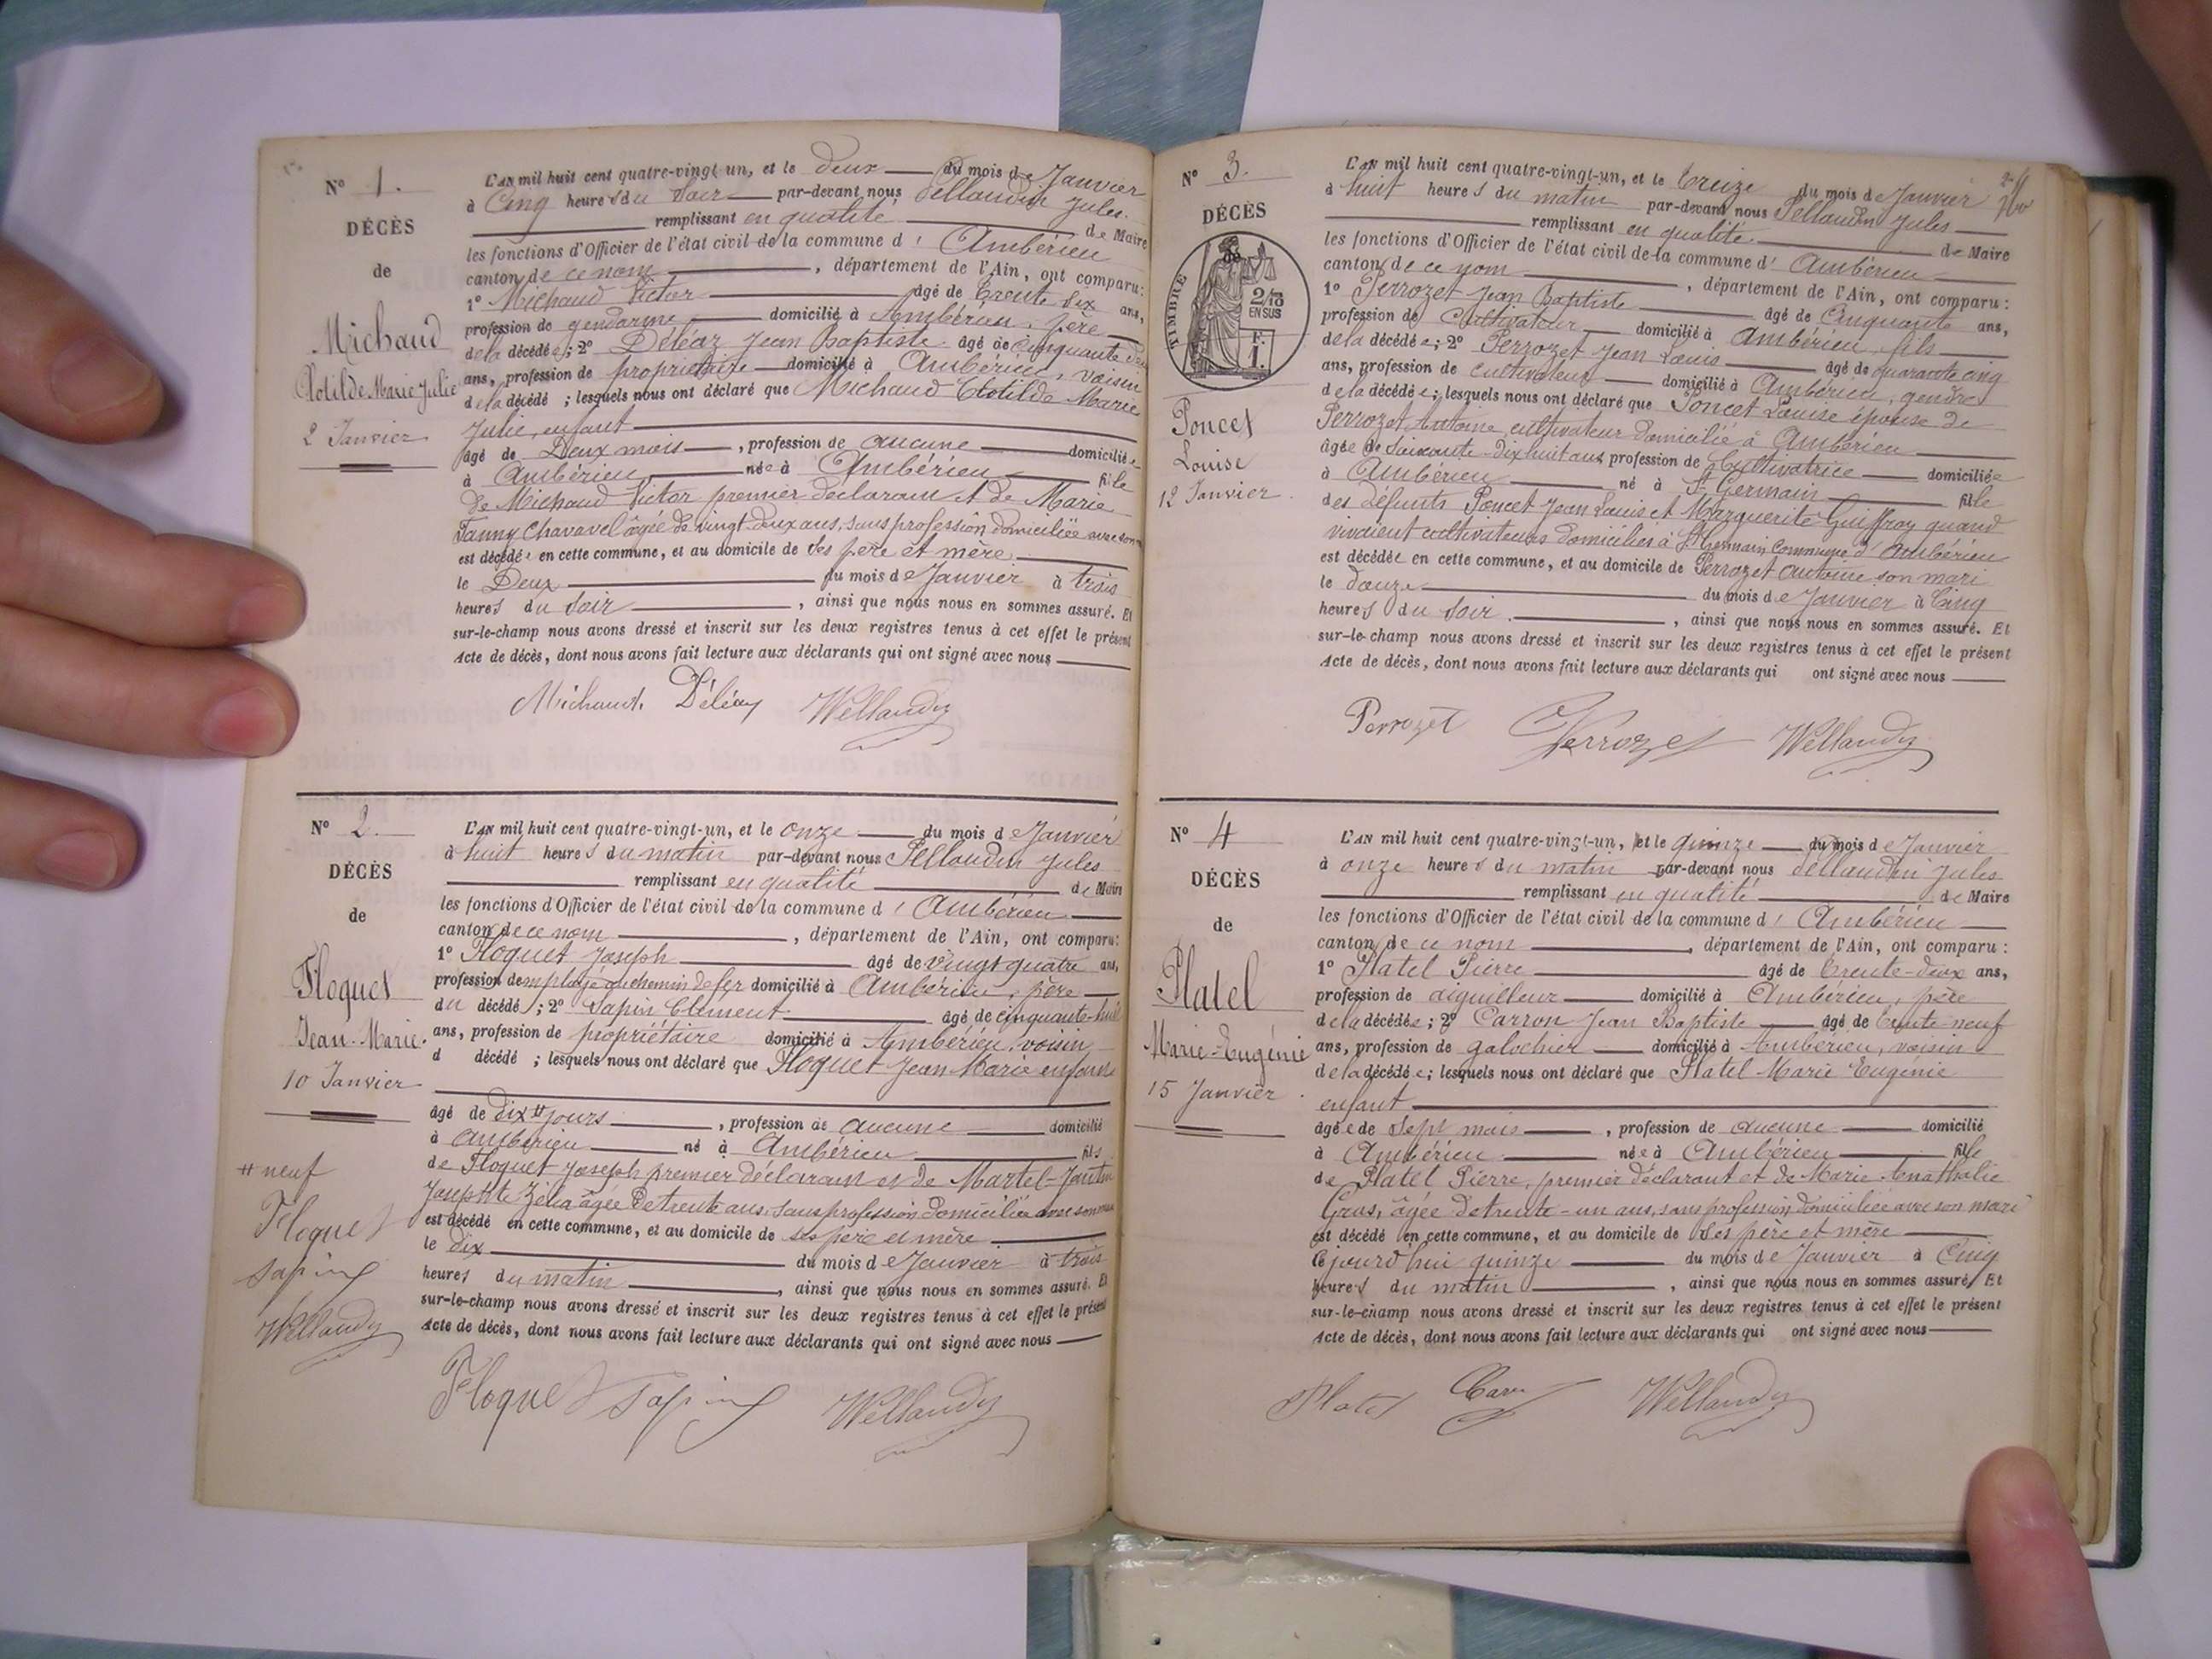 N° 1.
DÉCÈS
de
Michaud
Clotilde Marie Julie
2 Janvier
L'AN mil huit cent quatre-vingt-un, et le deux du mois de Janvier
à Cinq heures du Soir par-devant nous Pellaudin Jules
remplissant en qualité de Maire
les fonctions d'Officier de l'état civil de la commune d' Ambérieu
canton de ce nom, département de l'Ain, ont comparu:
1° Michaud Victor âgé de trente six ans,
profession de gendarme domicilié à Ambérieu, père
de la décédée; 2° Déléaz Jean Baptiste âgé de cinquante
ans, profession de propriétaire domicilié à Ambérieu, voisin
de la décédé; lesquels nous ont déclaré que Michaud Clotilde Marie
Julie, enfant
âgé de Deux mois, profession de aucune domiciliée
à Ambérieu née à Ambérieu fille
de Michaud Victor premier déclarant et de Marie
Fanny Chavavel âgée de vingt deux ans, sans profession domiciliée avec son
est décédée en cette commune, et au domicile de ses père et mère
le Deux du mois de Janvier à trois
heures du Soir, ainsi que nous nous en sommes assuré. Et
sur-le-champ nous avons dressé et inscrit sur les deux registres tenus à cet effet le présent
Acte de décès, dont nous avons fait lecture aux déclarants qui ont signé avec nous
Michaud. Déléaz
N° 2.
DÉCÈS
de
Floquet
Jean-Marie.
10 Janvier
# neuf
Floquet
Sapin
L'AN mil huit cent quatre-vingt-un, et le onze du mois de Janvier
à huit heures du matin par-devant nous Pellaudin Jules
remplissant en qualité de Maire
les fonctions d'Officier de l'état civil de la commune d' Ambérieu
canton de ce nom, département de l'Ain, ont comparu:
1° Floquet Joseph âgé de vingt quatre ans,
profession d'employé au chemin de fer domicilié à Ambérieu, père
du décédé; 2° Sapin Clément âgé de cinquante-huit
ans, profession de propriétaire domicilié à Ambérieu, voisin
d décédé; lesquels nous ont déclaré que Floquet Jean Marie enfant
âgé de dix # jours, profession de aucune domicilié
à Ambérieu né à Ambérieu fils
de Floquet Joseph premier déclarant et de Martel-Jantin
Josephte Zélia âgée de trente ans, sans profession domiciliée avec son mari
est décédé en cette commune, et au domicile de ses père et mère
le dix du mois de Janvier à trois
heures du matin, ainsi que nous nous en sommes assuré. Et
sur-le-champ nous avons dressé et inscrit sur les deux registres tenus à cet effet le présent
Acte de décès, dont nous avons fait lecture aux déclarants qui ont signé avec nous
Floquet Sapin
N° 3.
DÉCÈS
TIMBRE
2/10
EN SUS
F.
1.
Poncet
Louise
12 Janvier
L'AN mil huit cent quatre-vingt-un, et le treize du mois de Janvier
à huit heures du matin par-devant nous Pellaudin Jules
remplissant en qualité de Maire
les fonctions d'Officier de l'état civil de la commune d' Ambérieu
canton de ce nom, département de l'Ain, ont comparu:
1° Perrozet Jean Baptiste âgé de Cinquante ans,
profession de Cultivateur domicilié à Ambérieu, fils
de la décédée; 2° Perrozet Jean Louis âgé de quarante cinq
ans, profession de cultivateur domicilié à Ambérieu, gendre
de la décédée; lesquels nous ont déclaré que Poncet Louise épouse de
Perrozet Antoine, cultivateur domicilié à Ambérieu
âgée de soixante-dix huit ans profession de Cultivatrice domiciliée
à Ambérieu né à St Germain fille
des défunts Poncet Jean Louis et Marguerite Guiffroy quand
vivaient cultivateurs domiciliés à St Germain Commune d'Ambérieu
est décédée en cette commune, et au domicile de Perrozet Antoine son mari
le douze du mois de Janvier à Cinq
heures du Soir, ainsi que nous nous en sommes assuré. Et
sur-le-champ nous avons dressé et inscrit sur les deux registres tenus à cet effet le présent
Acte de décès, dont nous avons fait lecture aux déclarants qui ont signé avec nous
Perrozet Perrozet
N° 4
DÉCÈS
de
Platel
Marie-Eugénie
15 Janvier
L'AN mil huit cent quatre-vingt-un, et le quinze du mois de Janvier
à onze heures du matin par-devant nous Pellaudin Jules
remplissant en qualité de Maire
les fonctions d'Officier de l'état civil de la commune d' Ambérieu
canton de ce nom, département de l'Ain, ont comparu:
1° Platel Pierre âgé de trente-deux ans,
profession de aiguilleur domicilié à Ambérieu, père
de la décédée; 2° Carron Jean Baptiste âgé de trente-neuf
ans, profession de galochier domicilié à Ambérieu, voisin
de la décédée; lesquels nous ont déclaré que Platel Marie Eugénie
enfant
âgée de sept mois, profession de aucune domicilié
à Ambérieu née à Ambérieu fille
de Platel Pierre, premier déclarant et de Marie Anathalie
Gros, âgée de trente-un ans, sans profession domiciliée avec son mari
est décédé en cette commune, et au domicile de ses père et mère
cejourd'hui quinze du mois de Janvier à Cinq
heures du matin, ainsi que nous nous en sommes assuré. Et
sur-le-champ nous avons dressé et inscrit sur les deux registres tenus à cet effet le présent
Acte de décès, dont nous avons fait lecture aux déclarants qui ont signé avec nous
Platel